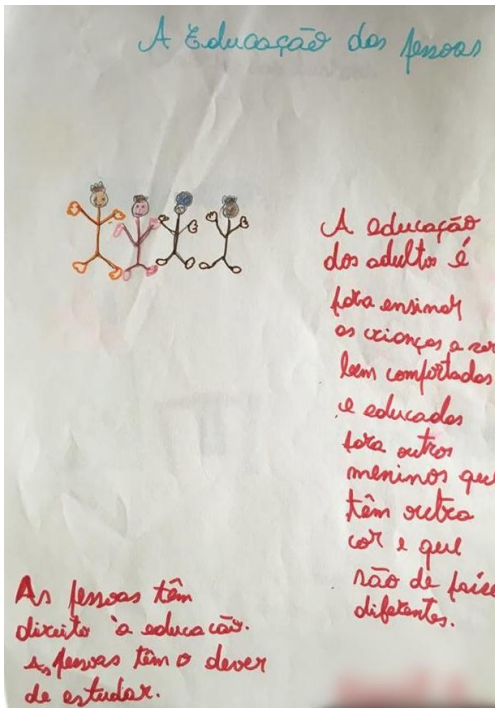 A Educação das pessoas
A educação
dos adultos é
para ensinar
as crianças a ser
bem comportados
e educados
para outros
meninos que
têm outra
cor e que
são de paíse
diferentes.
As pessoas têm
direito à educacão.
As pessoas têm o dever
de estudar.